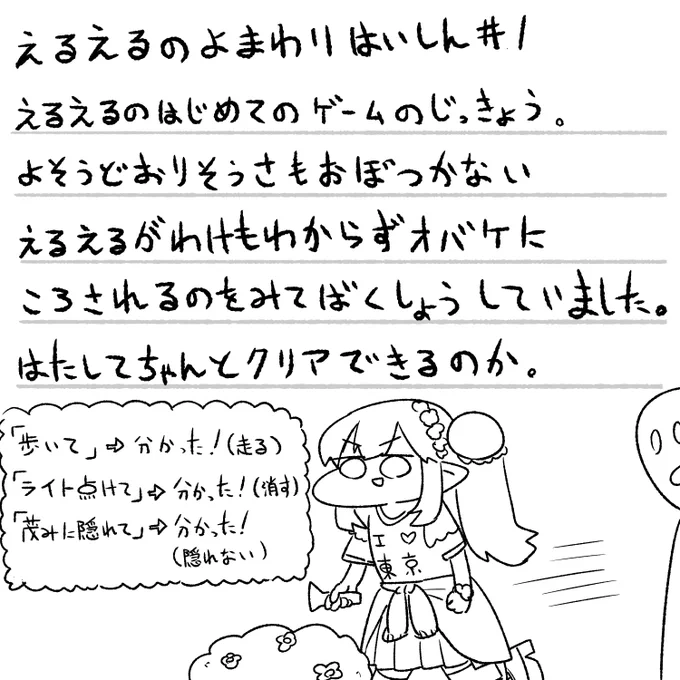 えるえるのよまわりはいしん#1
えるえるのはじめてのゲームのじっきょう。
よそうどおりそうさもおぼつかない
えるえるがわけもわからずオバケに
ころされるのをみてばくしょうしていました。
はたしてちゃんとクリアできるのか。
「歩いて」⇨分かった!(走る)
「ライト点けて」⇨分かった!(消す)
「茂みに隠れて」⇨分かった!
(隠れない)
I♡
東京